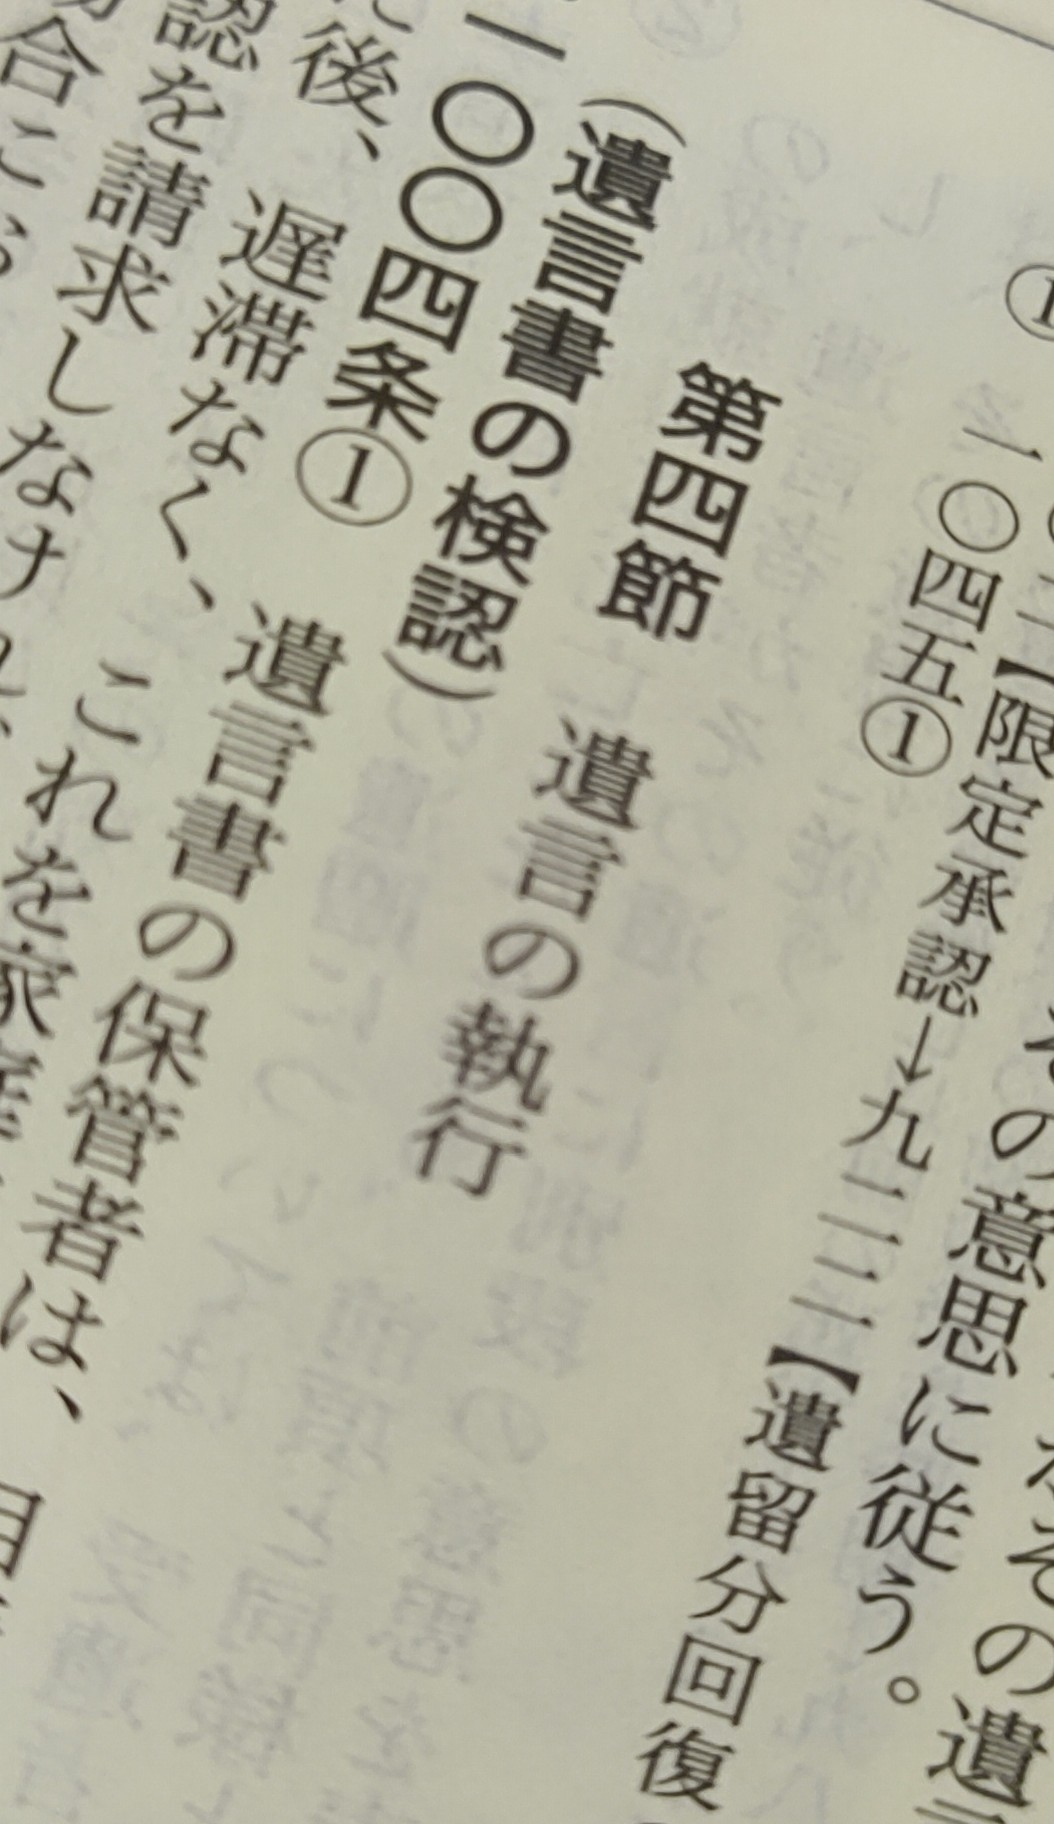 その遺
その意思に従う。
【限定承認→九二二【遺留分回復
一〇四五①
第四節　遺言の執行
（遺言書の検認）
一〇〇四条①　遺言書の保管者は、
後、遅滞なく、これを家
認を請求しなけれ
合